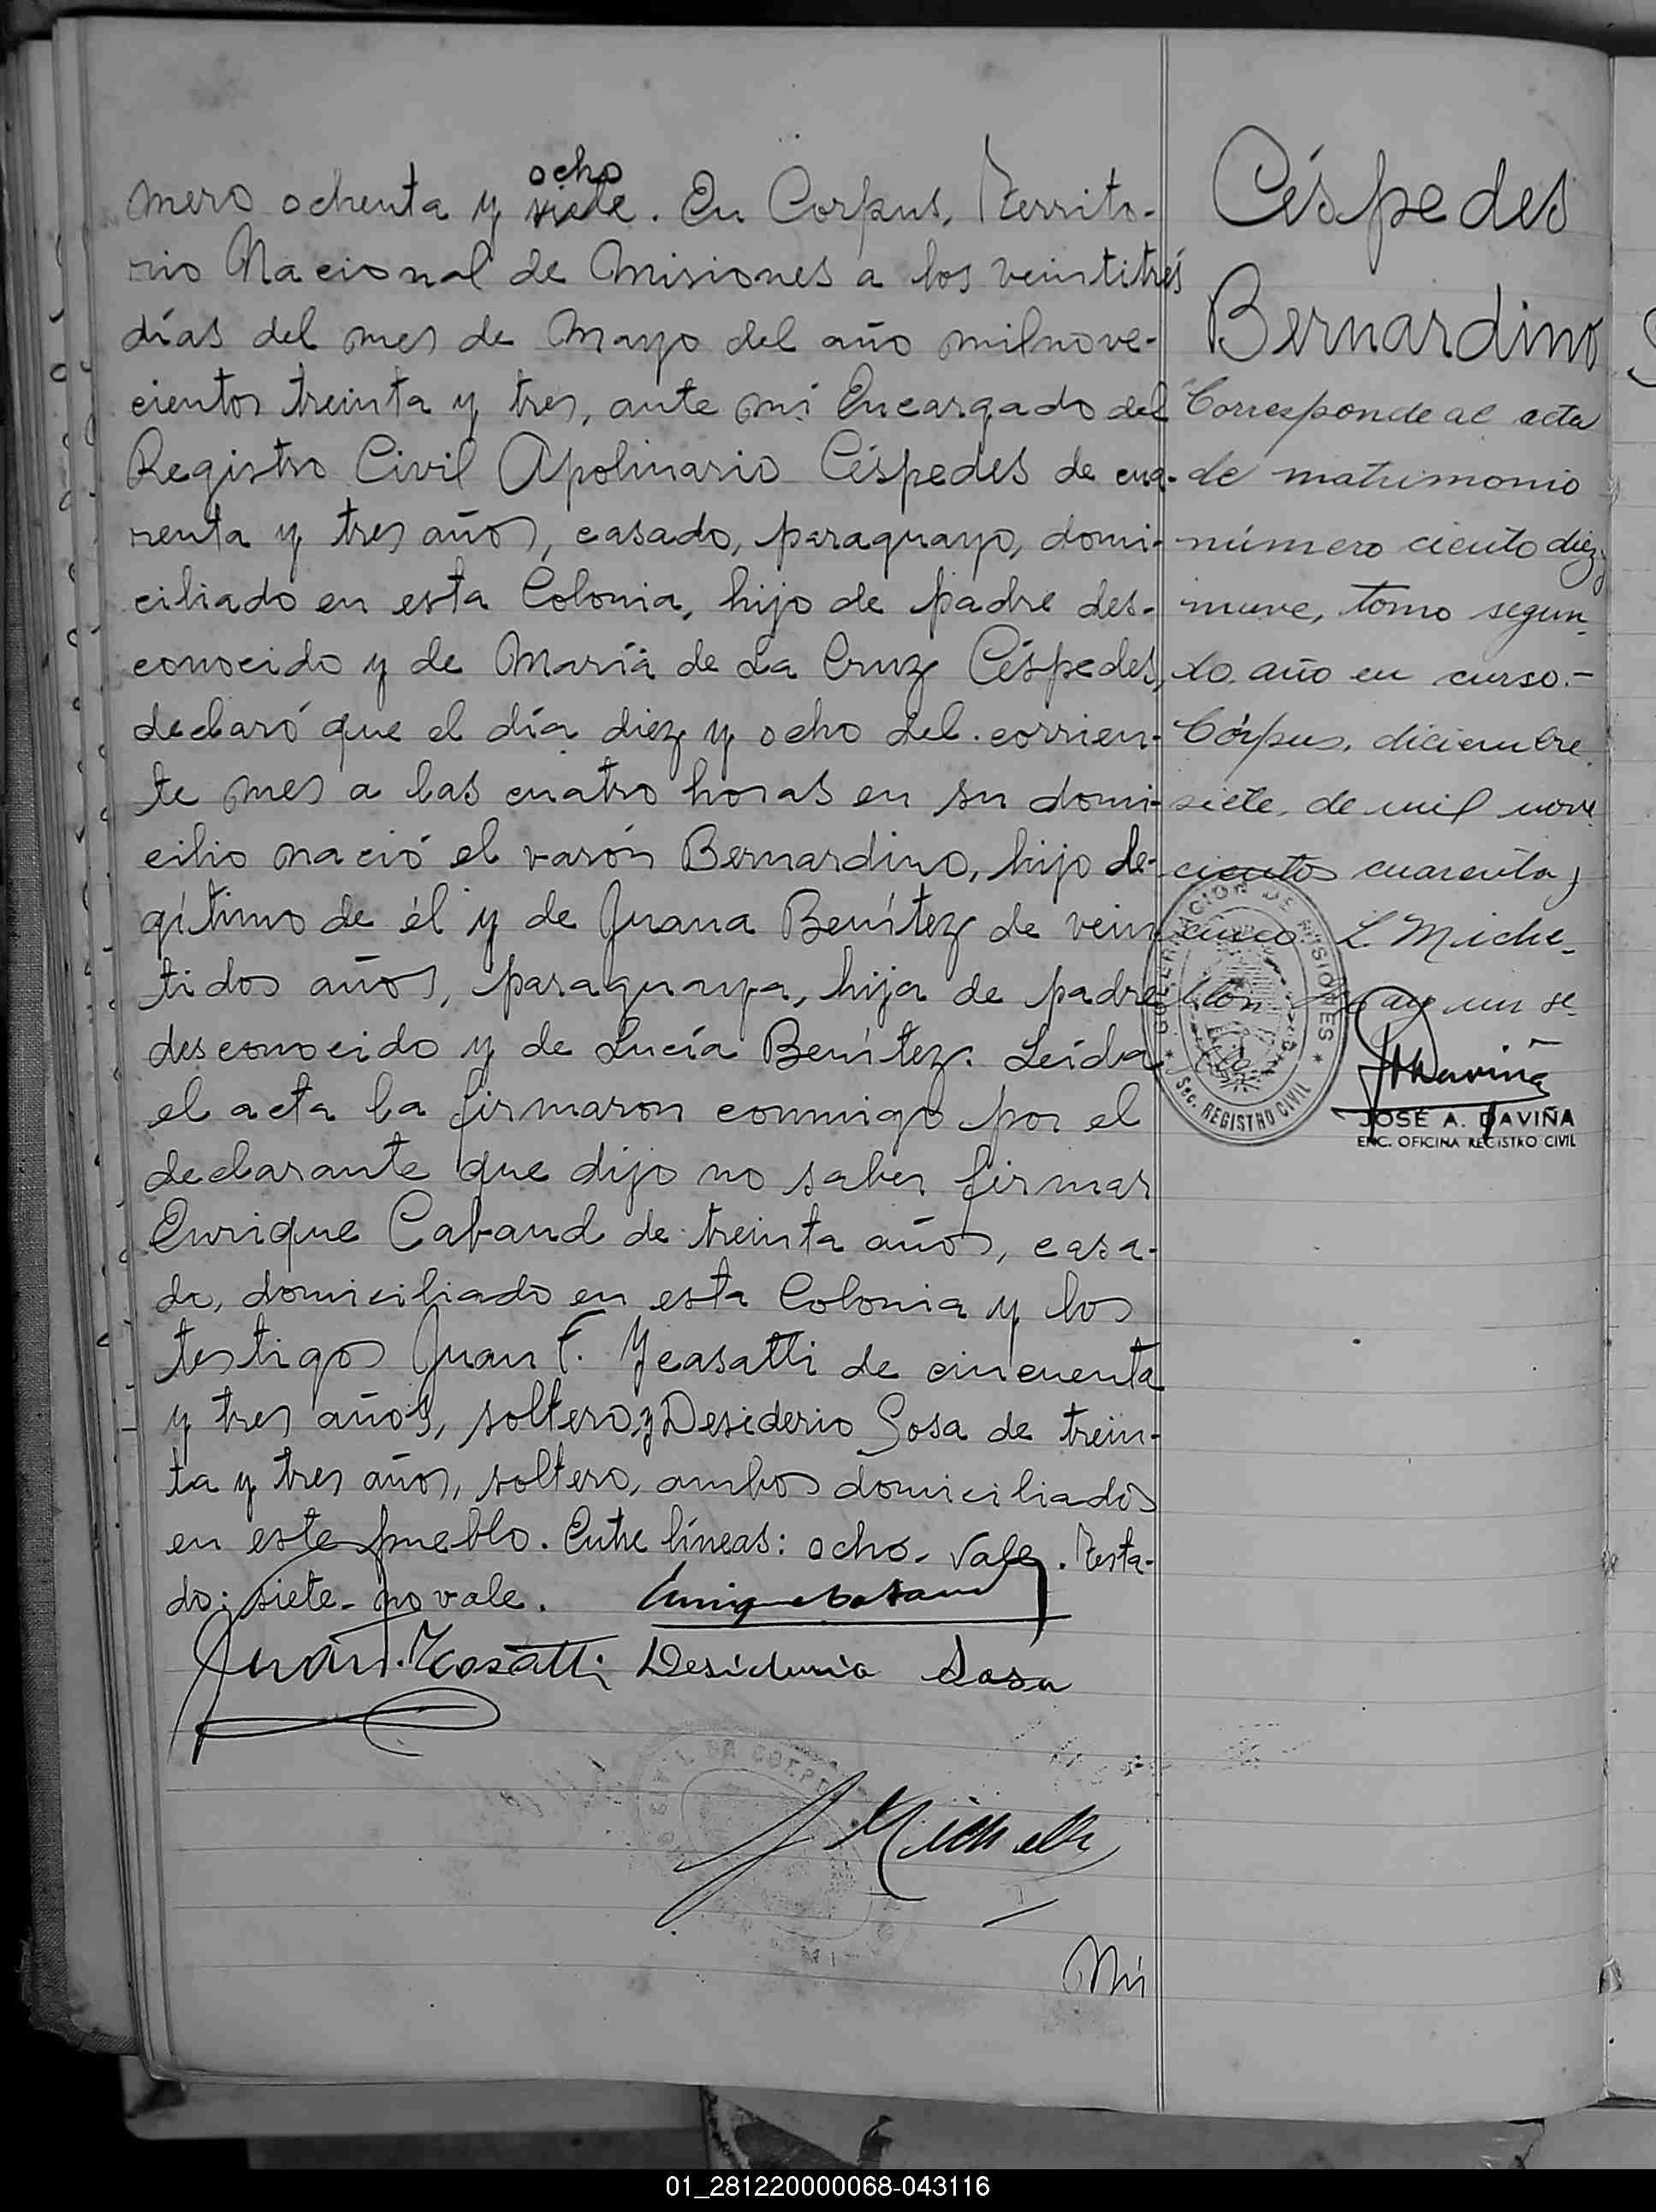 mero ochenta y siete. En Corpus, Territo-
ocho
rio Nacional de Misiones a los veintitrés
días del mes de Mayo del año milnove-
cientos treinta y tres, ante mí Encargado del
Registro Civil Apolinario Céspedes de cua-
renta y tres años, casado, paraguayo, domi-
ciliado en esta Colonia, hijo de padre des-
conocido y de María de La Cruz Céspedes,
declaró que el día diez y ocho del corrien-
te mes a las cuatro horas en su domi-
cilio nació el varón Bernardino, hijo le-
gítimo de él y de Juana Benítez de vein-
tidos años, paraguaya, hija de padre
desconocido y de Lucía Benítez. Leída
el acta la firmaron conmigo por el
declarante que dijo no saber firmar
Enrique Cabaud de treinta años, casa-
do, domiciliado en esta Colonia y los
testigos Juan F. Yeasatti de cincuenta
y tres años, soltero, y Desiderio Sosa de trein-
ta y tres años, soltero, ambos domiciliados
en este pueblo. Entre líneas: ocho. Vale. Testa-
do: siete. no vale.
Desiderio Sosa
Mú
Céspedes
Bernardino
Corresponde al acta
de matrimonio
número ciento diez y
nueve, tomo segun-
do, año en curso.-
Córpus, diciembre
siete, de mil nove
cientos cuarenta y
cinco L. Miche-
llón Hay un se-
llo
GOBERNACION DE MISIONES
Sec. REGISTRO CIVIL
JOSÉ A. DAVIÑA
ENC. OFICINA REGISTRO CIVIL
01_281220000068-043116